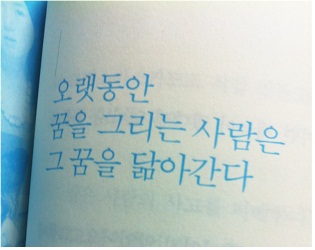 오랫동안
꿈을 그리는 사람은
그 꿈을 닮아간다